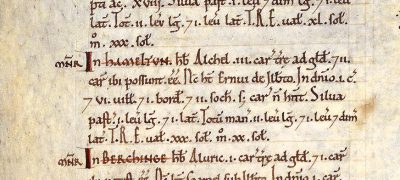 pta ac xviii. Silua past. i. leu 7 dim lg.
lat. Tot. ii. leu lg. 7 i. leu lat. T.R.E. ual. xl. sol.
m. xxx. sol.
In HAMELTUN. hb Alchel. iii. car tre ad gld. 7 ii.
car ibi possunt ee. Nc ht Ernui de Ilbto. In dnio. i. c
7 vi. uill. 7 i. bord. 7 ii. soch. car hnt. Silua
past. i. leu lg. 7 i. lat. Totu man. ii. leu lg. 7 i. leu 7 dim
lat. T.R.E. ual. xxx. sol. m. xx. sol.
In BERCHINGE. hb Aluric. i. car tre ad gld. 7 i. car